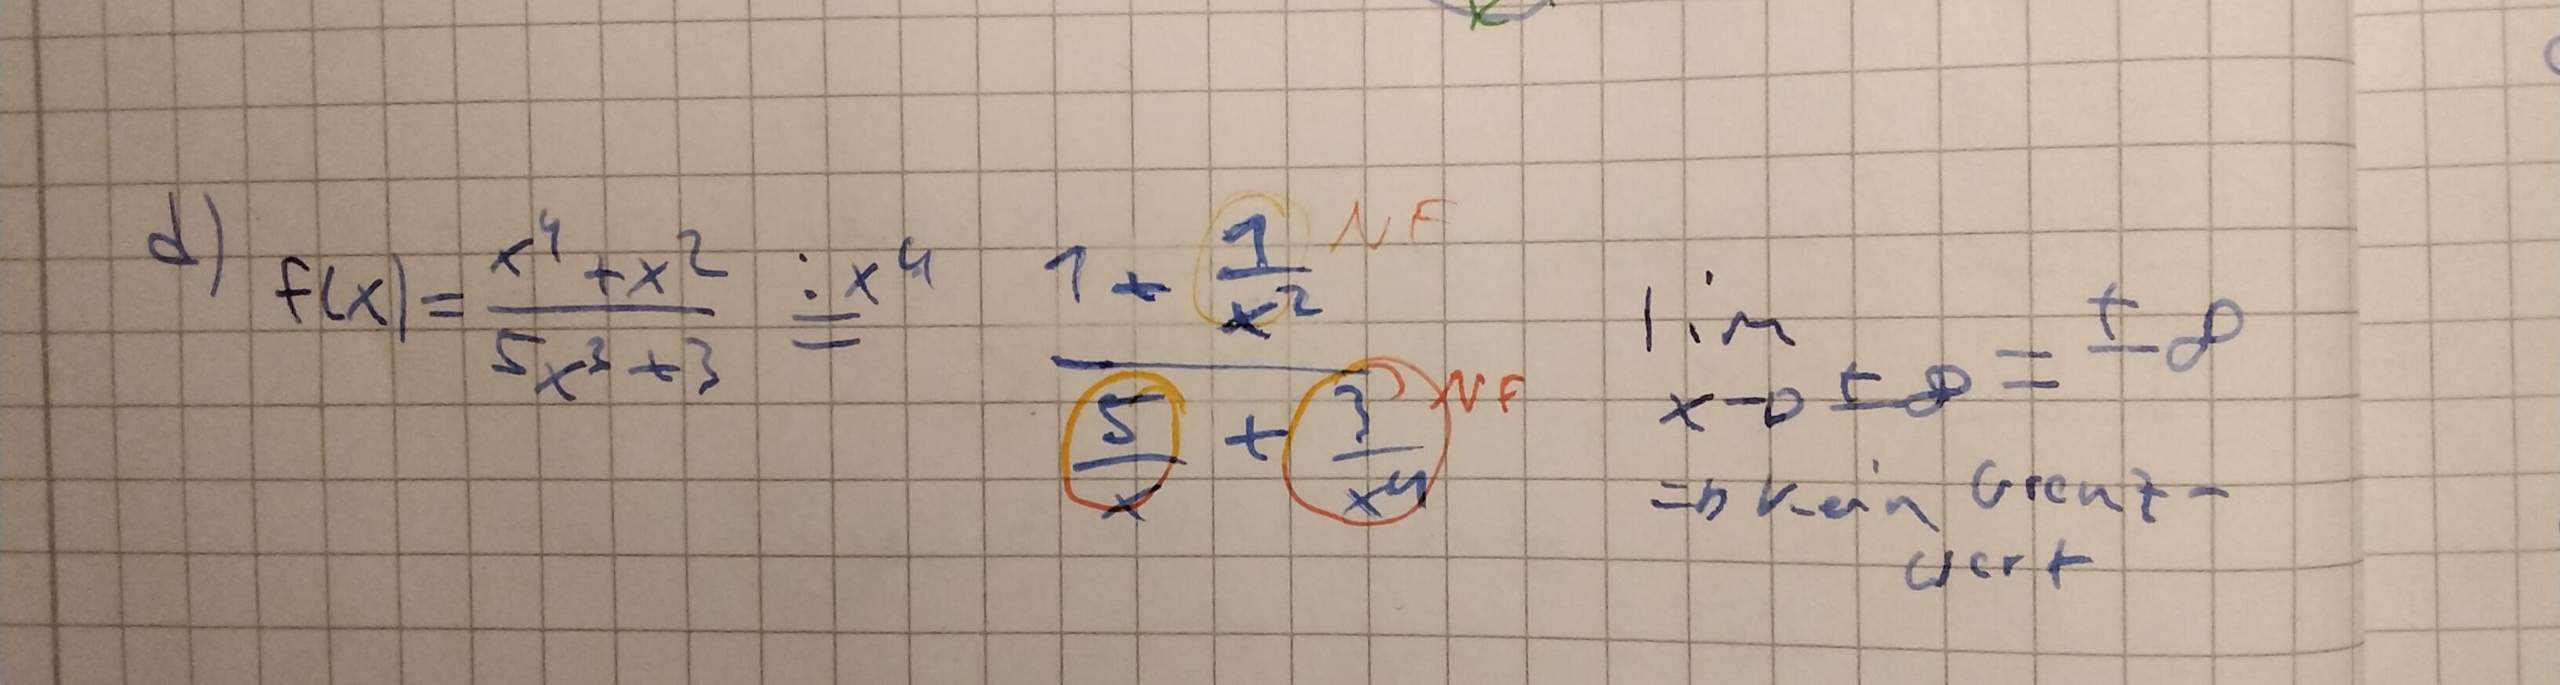 d) f(x) = (x⁴ + x²)/(5x³ + 3) :x⁴ = (1 + 1/x²)/(5/x + 3/x⁴) NF NF
lim x→±∞ = ±∞
⇒ kein Grenz-
wert